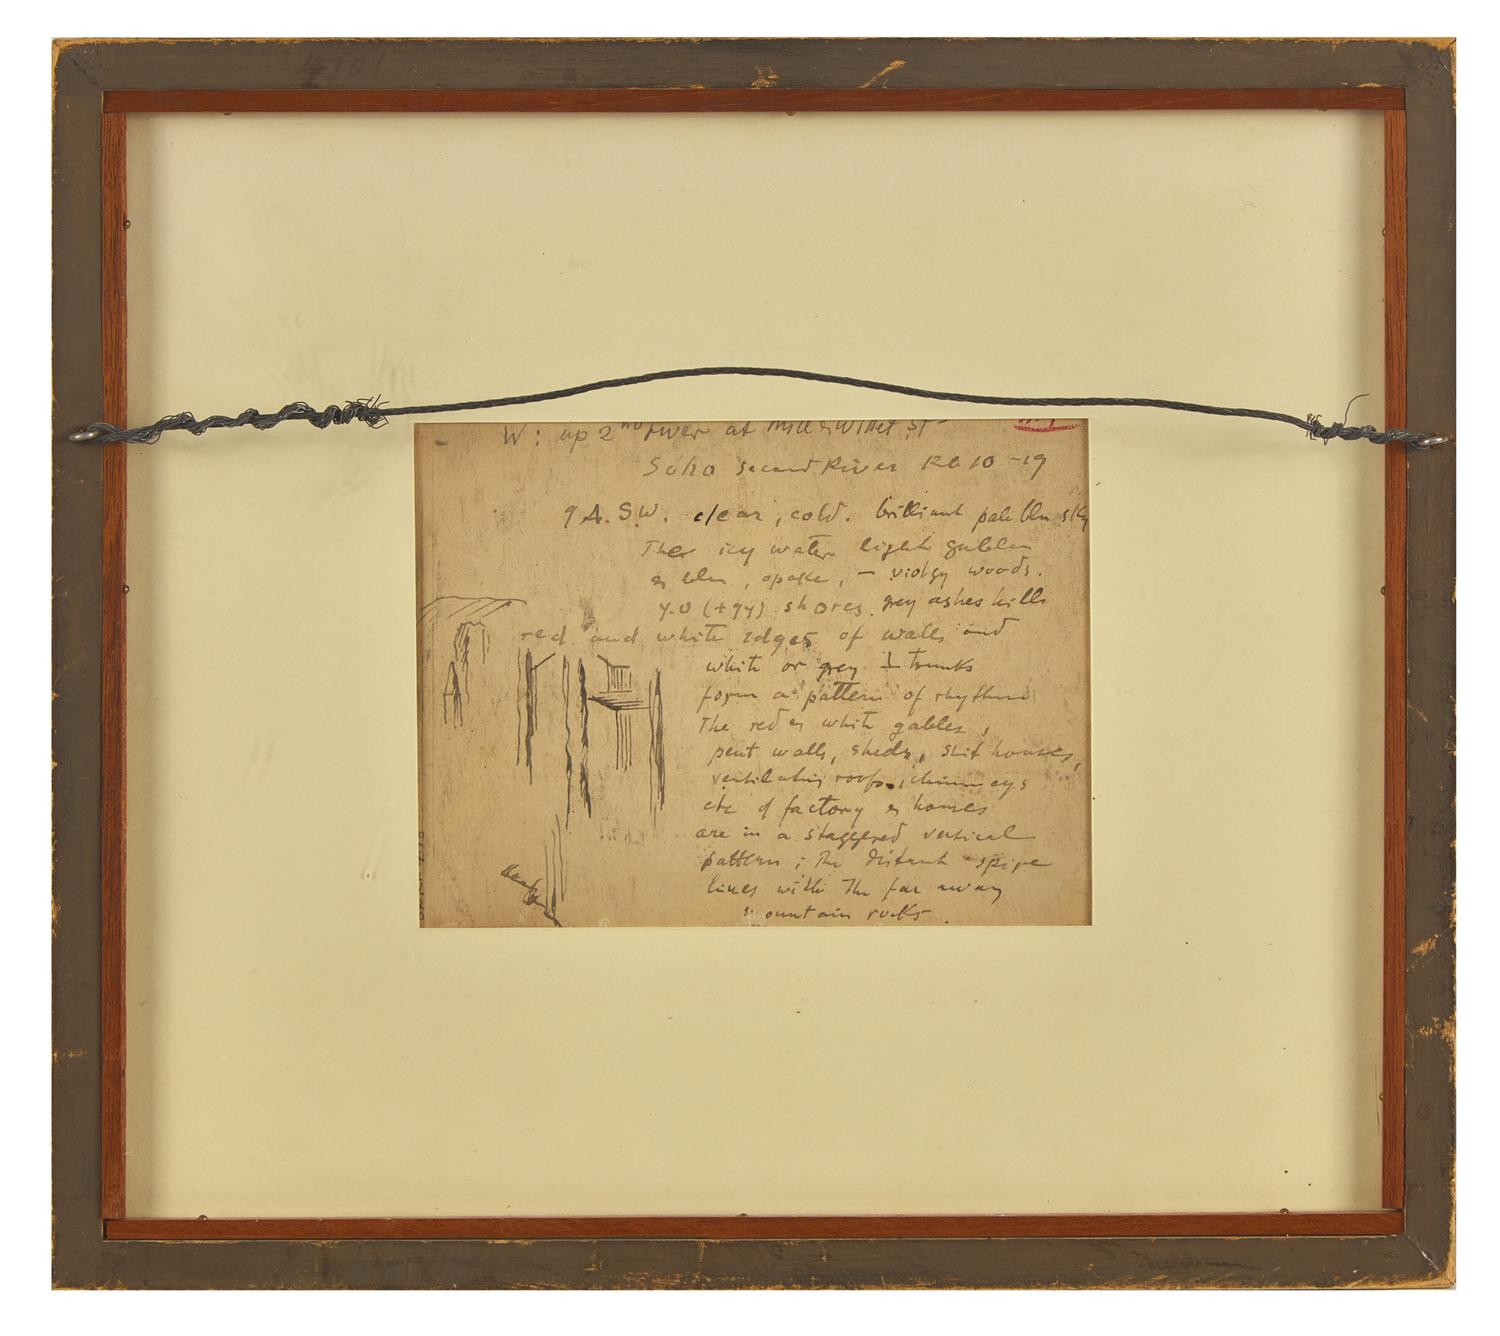 W: up 2nd river at mill & Willet St
Soho Second River 10-19
9 A. S.W. clear, cold. brilliant pale blu sky
The icy water light
& blu, opake, – woods.
y.o (+gy) shores grey ashes hills
red and white edges of walls and
white or grey ⊥ trunks
form a pattern of rhythm
The red & white gables,
pent walls, sheds, shit houses,
ventilating roofs, chimneys
etc of factory & homes
are in a staggered vertical
pattern; The distant spire
lines with The far away
mountain rocks.